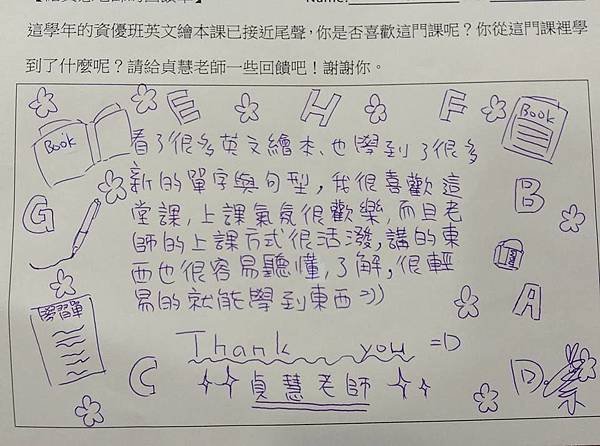 這學年的資優班英文繪本課已接近尾聲，你是否喜歡這門課呢？你從這門課裡學
到了什麼呢？請給貞慧老師一些回饋吧！謝謝你。
E H F
Book
Book
看了很多英文繪本、也學到了很多
新的單字與句型，我很喜歡這
堂課，上課氣氛很歡樂，而且老
師的上課方式很活潑，講的東
西也很容易聽懂，了解，很輕
易的就能學到東西=))
G
B
學習單
A
Thank you =D
C
貞慧老師
D